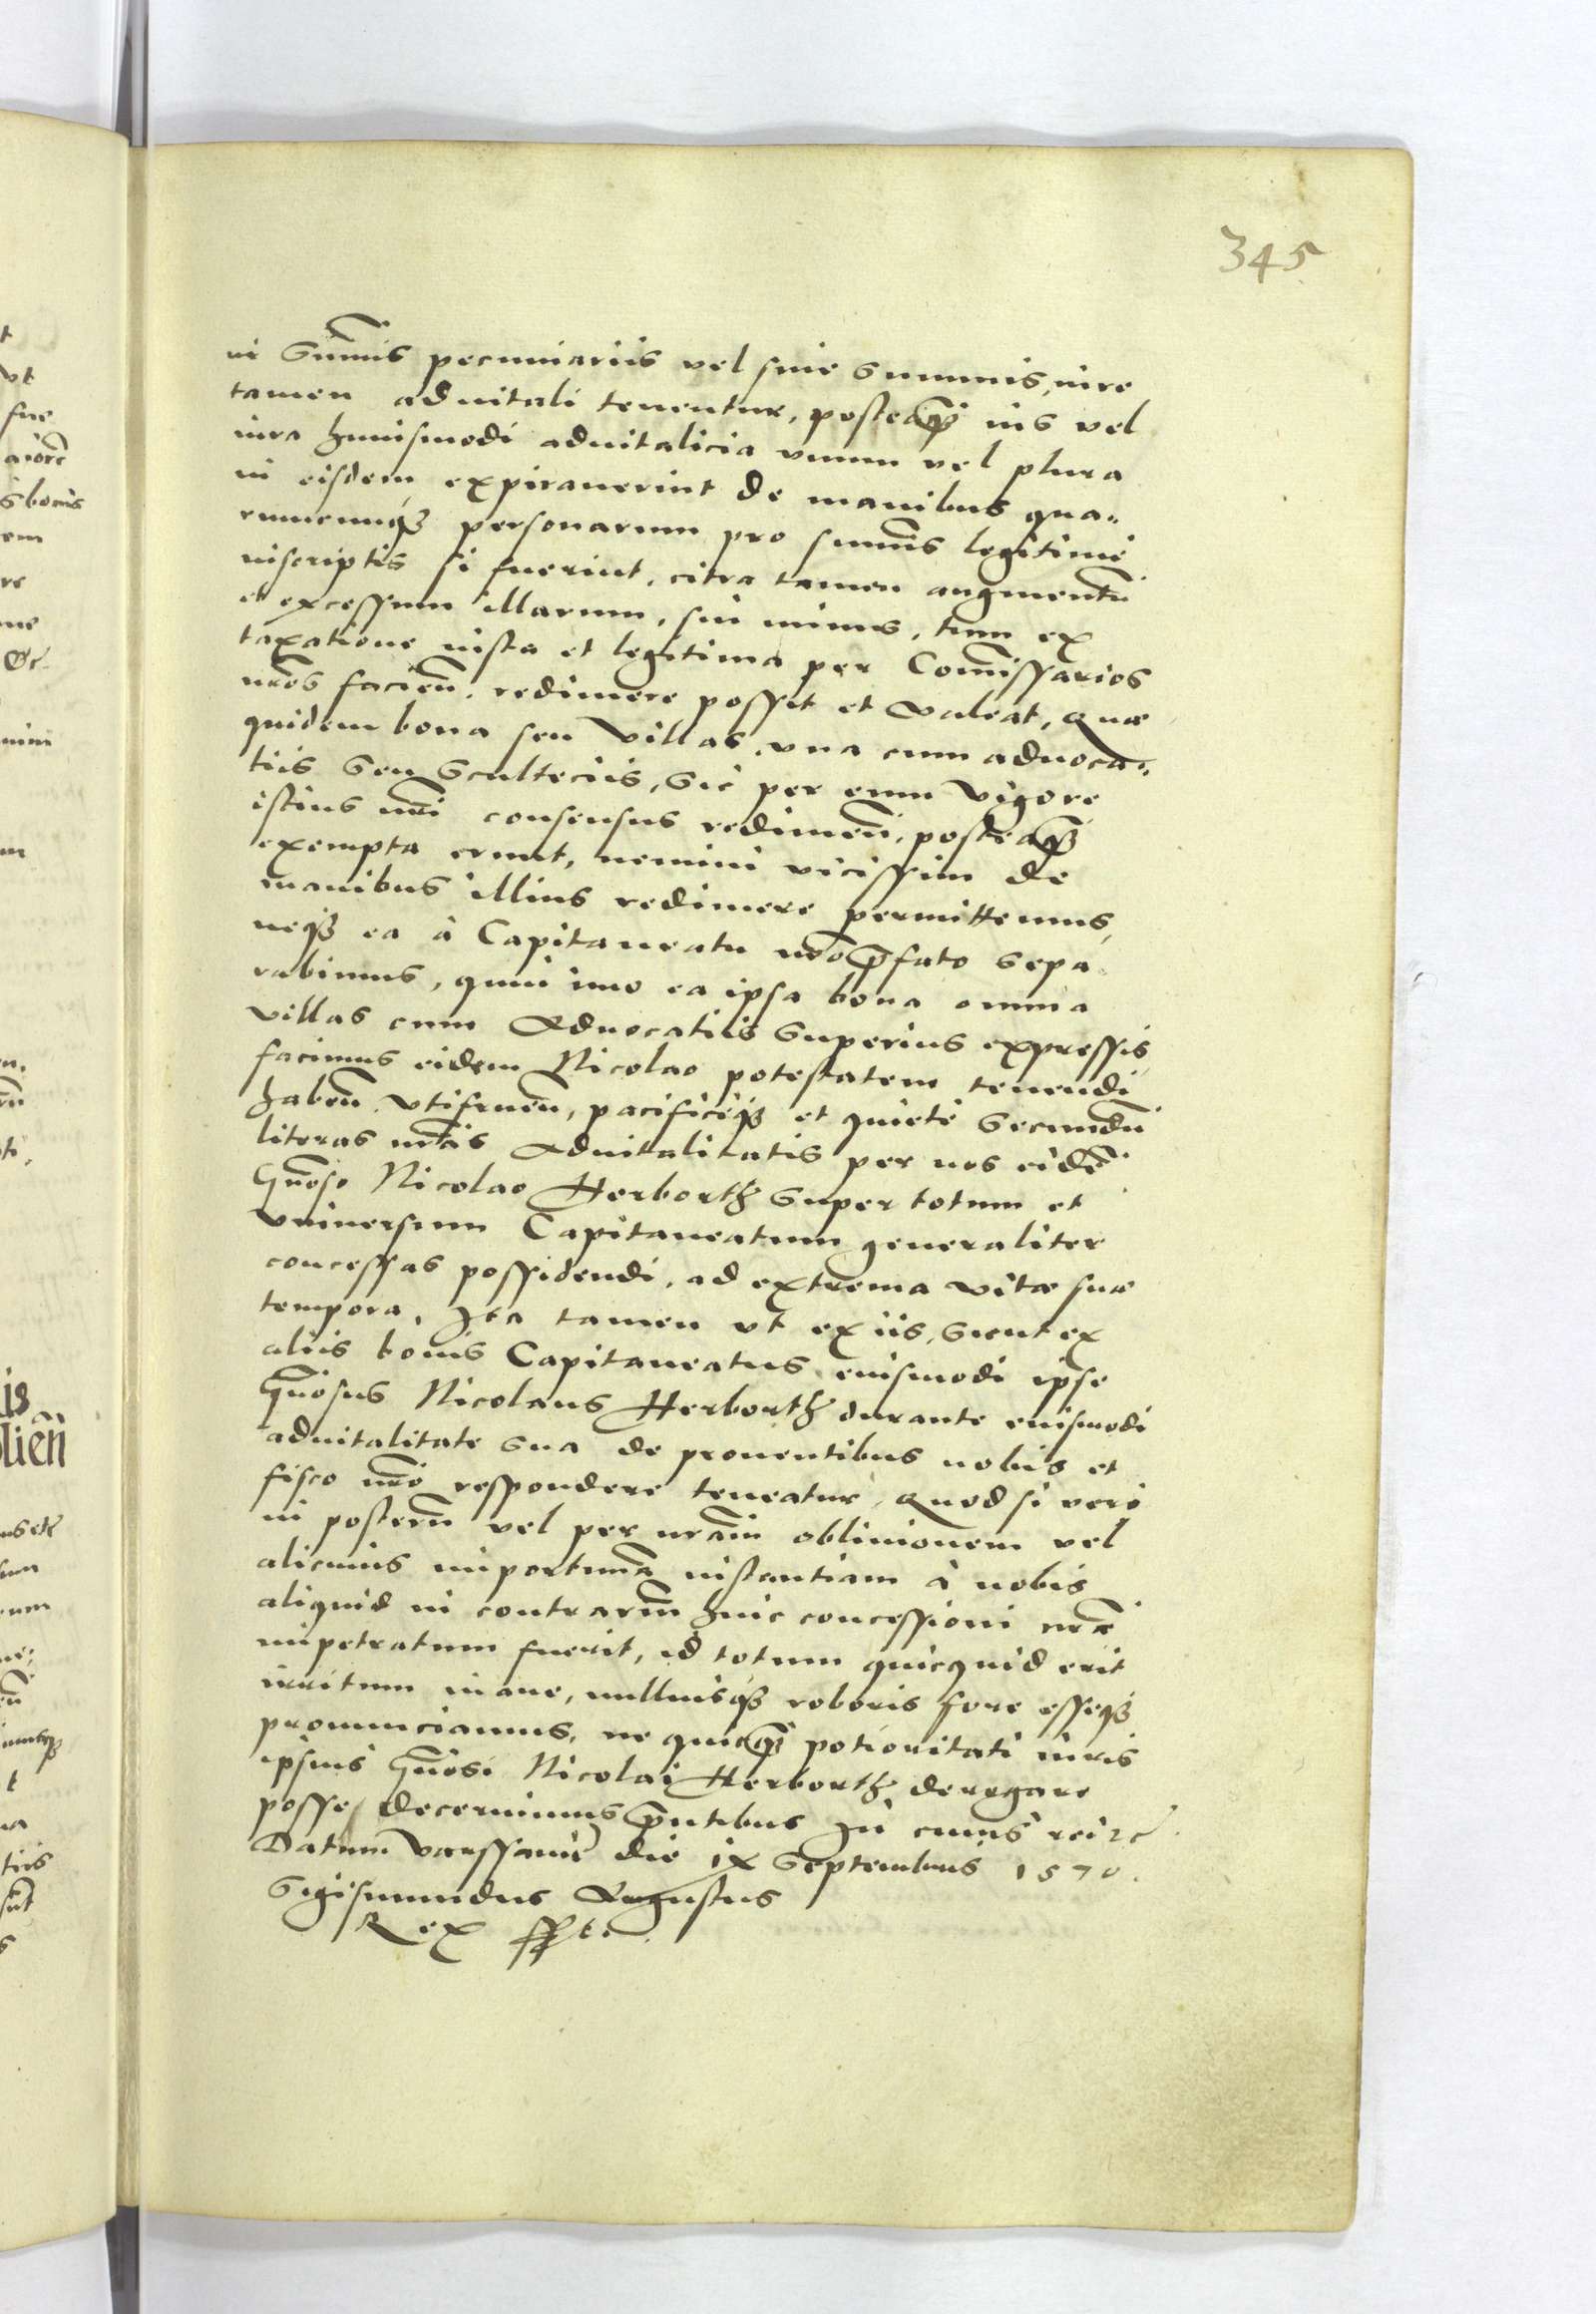 345
in sum̃is pecuniarijs vel sine summis, iure
tamen aduitali tenentur, posteaq̃ ius vel
iura huiusmodi aduitalicia vnum vel plura
in eisdem expirauerint de manibus qua„
rumcunq3 personarum pro sum̃is legitimè
inscriptis si fuerint, citra tamen augmentũ
et excessum illarum, sin minus, tum ex
taxatione iusta et legitima per Com̃issarios
nr̃os facien̄. redimere possit et valeat, Quæ
quidem bona seu villas, vna cum aduoca„
tiis seu scultecijs, sic per eum vigore
istius nr̃i consensus redimen̄. posteaq̃3
exempta erunt, nemini vicissim de
manibus illius redimere permittemus,
neq3 ea à Capitaneatu nr̃o p̃fato sepa
rabimus, quin imo ea ipsa bona omnia
villas cum Aduocatijs superius expressis,
facimus eidem Nicolao potestatem tenendi
haben̄. vtifruen̄, pacificèq3 et quietè secundũ
literas nr̃as Aduitalitatis per nos eidẽ
Gn̄oso Nicolao Herborth super totum et
vniuersum Capitaneatum generaliter
concessas possidendi, ad extrema vitæ suæ
tempora, Ita tamen vt ex ijs, sicut ex
alijs bonis Capitaneatus eiusmodi ipse
Gn̄osus Nicolaus Herborth durante eiusmodi
aduitalitate sua de prouentibus nobis et
fisco nr̃o respondere teneatur, Quod si verò
in posterũ vel per nr̃am obliuionem vel
alicuius importunã instantiam à nobis
aliquid in contrariũ huic concessioni nr̃æ
impetratum fuerit, id totum quicquid erit
irritum inane, nulliusq3 roboris fore esseq3
pronunciamus, ne quicq̃ potioritati iuris
ipsius Gn̄osi Nicolai Herborth derogare
posse decernimus p̃ntibus In cuius rei etc̃.
Datum Varssauiæ die ix Septembris 1570.
Sigismundus Augustus
Rex sspt.